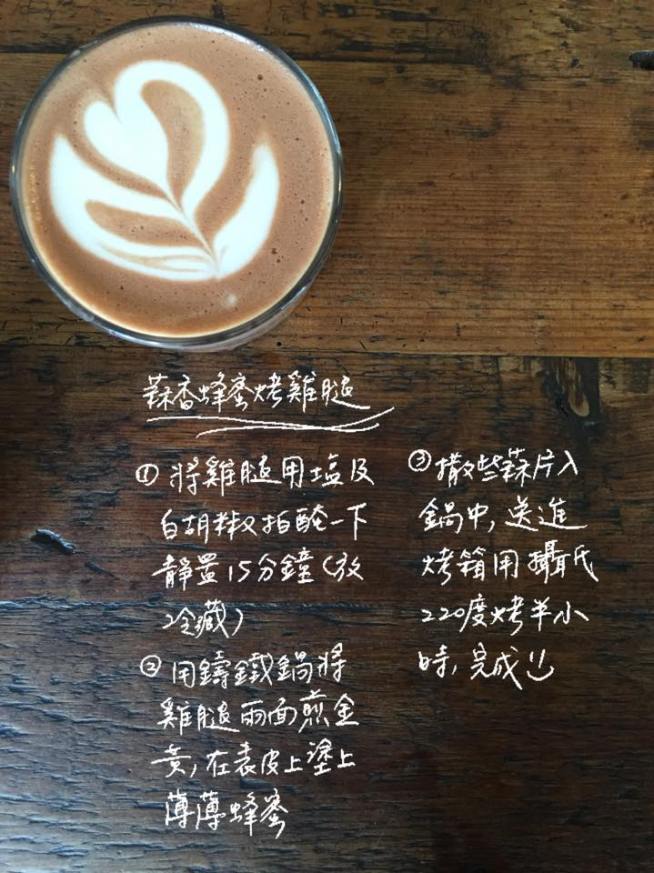 蒜香蜂蜜烤雞腿
①將雞腿用塩及
白胡椒拍醃一下
靜置15分鐘(放
冷藏)
②用鑄鐵鍋將
雞腿兩面煎金
黃,在表皮上塗上
薄薄蜂蜜
③撒些蒜片入
鍋中,送進
烤箱用攝氏
220度烤半小
時,完成